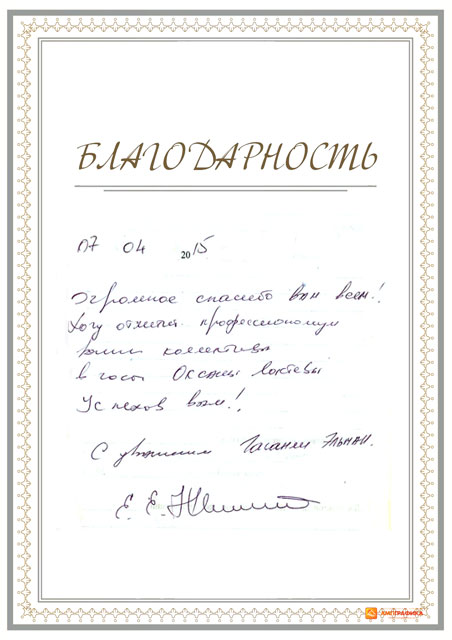 БЛАГОДАРНОСТЬ
07 04 2015
Огромное спасибо вам всем!
Хочу отметить профессионализм
вашего коллектива
в Оксаны
Успехов вам!
С уважением Гасанли Эльман.
Е. Е.
АМПГРАФИКА